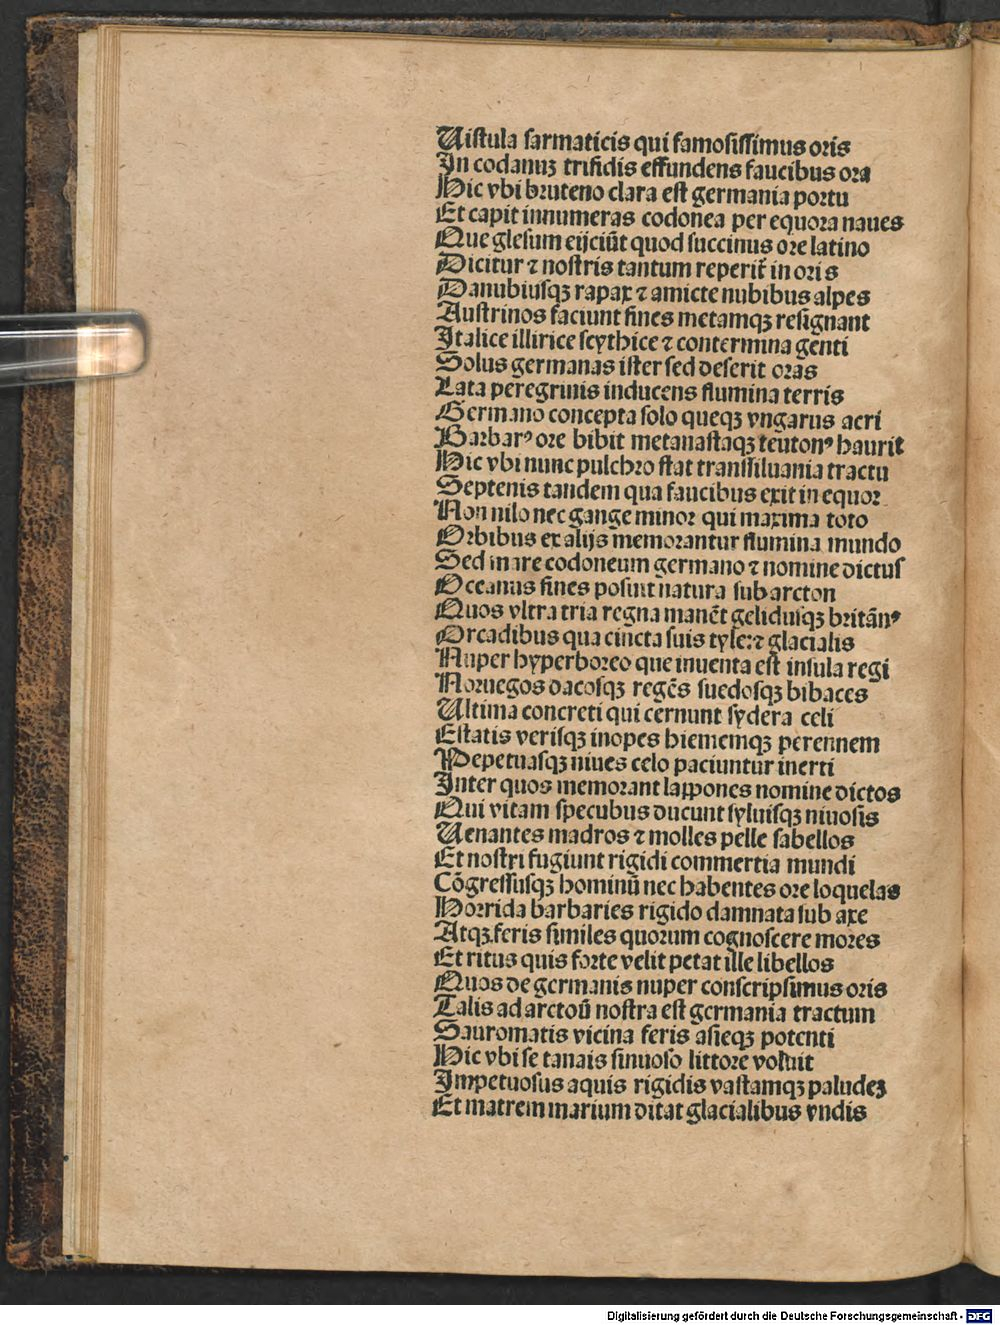 Uiſtula ſarmaticis qui famoſiſſimus oris
In codanuꝫ trifidis effundens faucibus ora
Hic vbi bruteno clara eſt germania portu
Et capit innumeras codonea per equora naues
Que gleſum eijciūt quod ſuccinus ore latino
Dicitur ⁊ noſtris tantum reperit̄ in oris
Danubiuſqꝫ rapax ⁊ amicte nubibus alpes
Auſtrinos faciunt fines metamqꝫ reſignant
Italice illirice ſcythice ⁊ contermina genti
Solus germanas iſter ſed deſerit oras
Lata peregrinis inducens flumina terris
Germano concepta ſolo queqꝫ vngarus acri
Barbarꝰ ore bibit metanaſtaqꝫ teutonꝰ haurit
Hic vbi nunc pulchro ſtat tranſſiluania tractu
Septenis tandem qua faucibus exit in equor
Non nilo nec gange minor qui maxima toto
Orbibus ex alijs memorantur flumina mundo
Sed mare codoneum germano ⁊ nomine dictuſ
Oceanus fines poſuit natura ſub arcton
Quos vltra tria regna manēt geliduſqꝫ britānꝰ
Orcadibus qua cincta ſuis tyle:⁊ glacialis
Nuper hyperboreo que inuenta eſt inſula regi
Noruegos dacoſqꝫ regēs ſuedoſqꝫ bibaces
Ultima concreti qui cernunt ſydera celi
Eſtatis veriſqꝫ inopes hiememqꝫ perennem
Pepetuaſqꝫ niues celo paciuntur inerti
Inter quos memorant lappones nomine dictos
Qui vitam ſpecubus ducunt ſyluiſqꝫ niuoſis
Uenantes madros ⁊ molles pelle ſabellos
Et noſtri fugiunt rigidi commertia mundi
Cōgreſſuſqꝫ hominū nec habentes ore loquelas
Horrida barbaries rigido damnata ſub axe
Atqꝫ feris ſimiles quorum cognoſcere mores
Et ritus quis forte velit petat ille libellos
Quos de germanis nuper conſcripſimus oris
Talis ad arctoū noſtra eſt germania tractum
Sauromatis vicina feris aſieqꝫ potenti
Hic vbi ſe tanais ſinuoſo littore voluit
Impetuoſus aquis rigidis vaſtamqꝫ paludeꝫ
Et matrem marium ditat glacialibus vndis
Digitalisierung gefördert durch die Deutsche Forschungsgemeinschaft - DFG